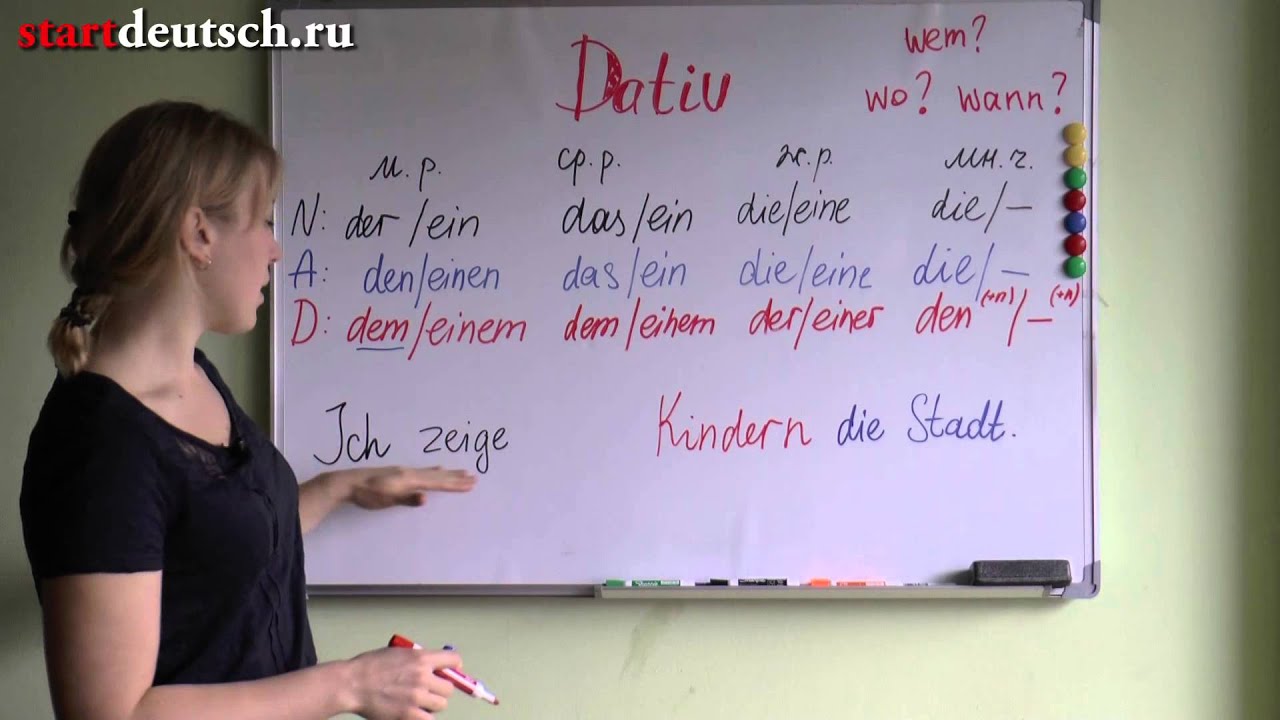 startdeutsch.ru
Dativ
wem?
wo? wann?
м. р. ср. р. ж. р. мн. ч.
N: der/ein das/ein die/eine die/–
A: den/einen das/ein die/eine die/–
D: dem/einem dem/einem der/einer den (+n)/– (+n)
Ich zeige Kindern die Stadt.